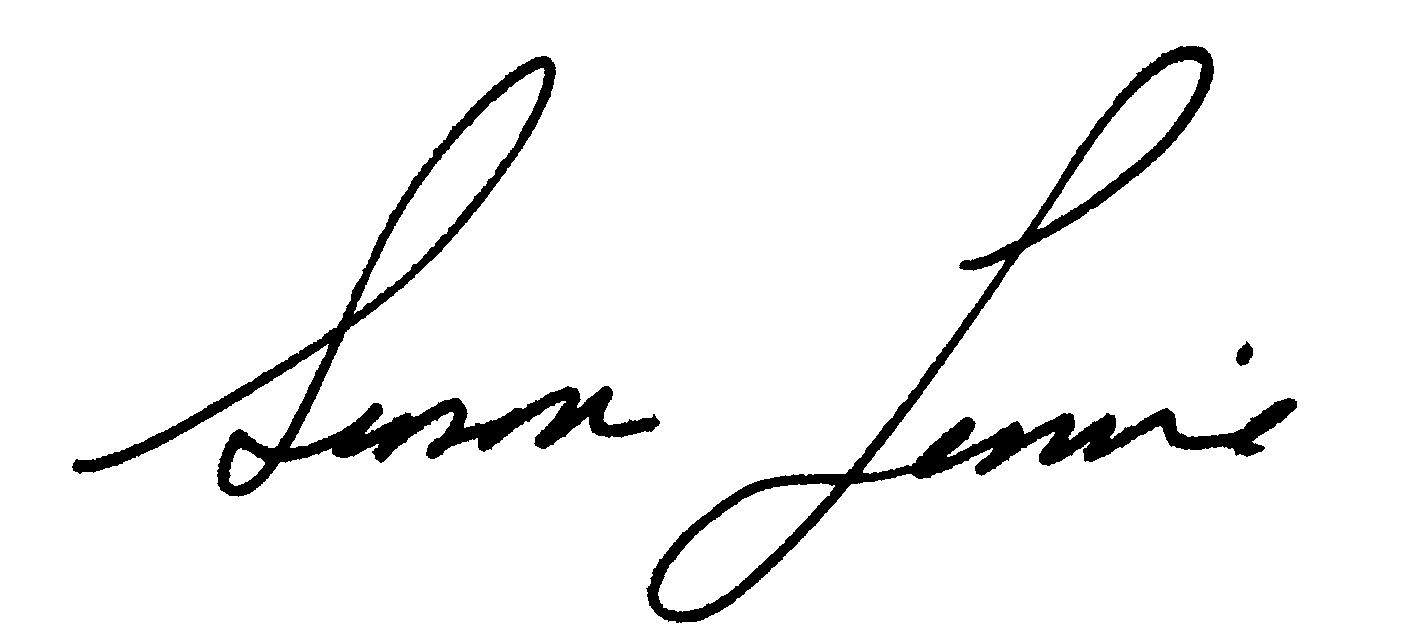 Susan Lennie